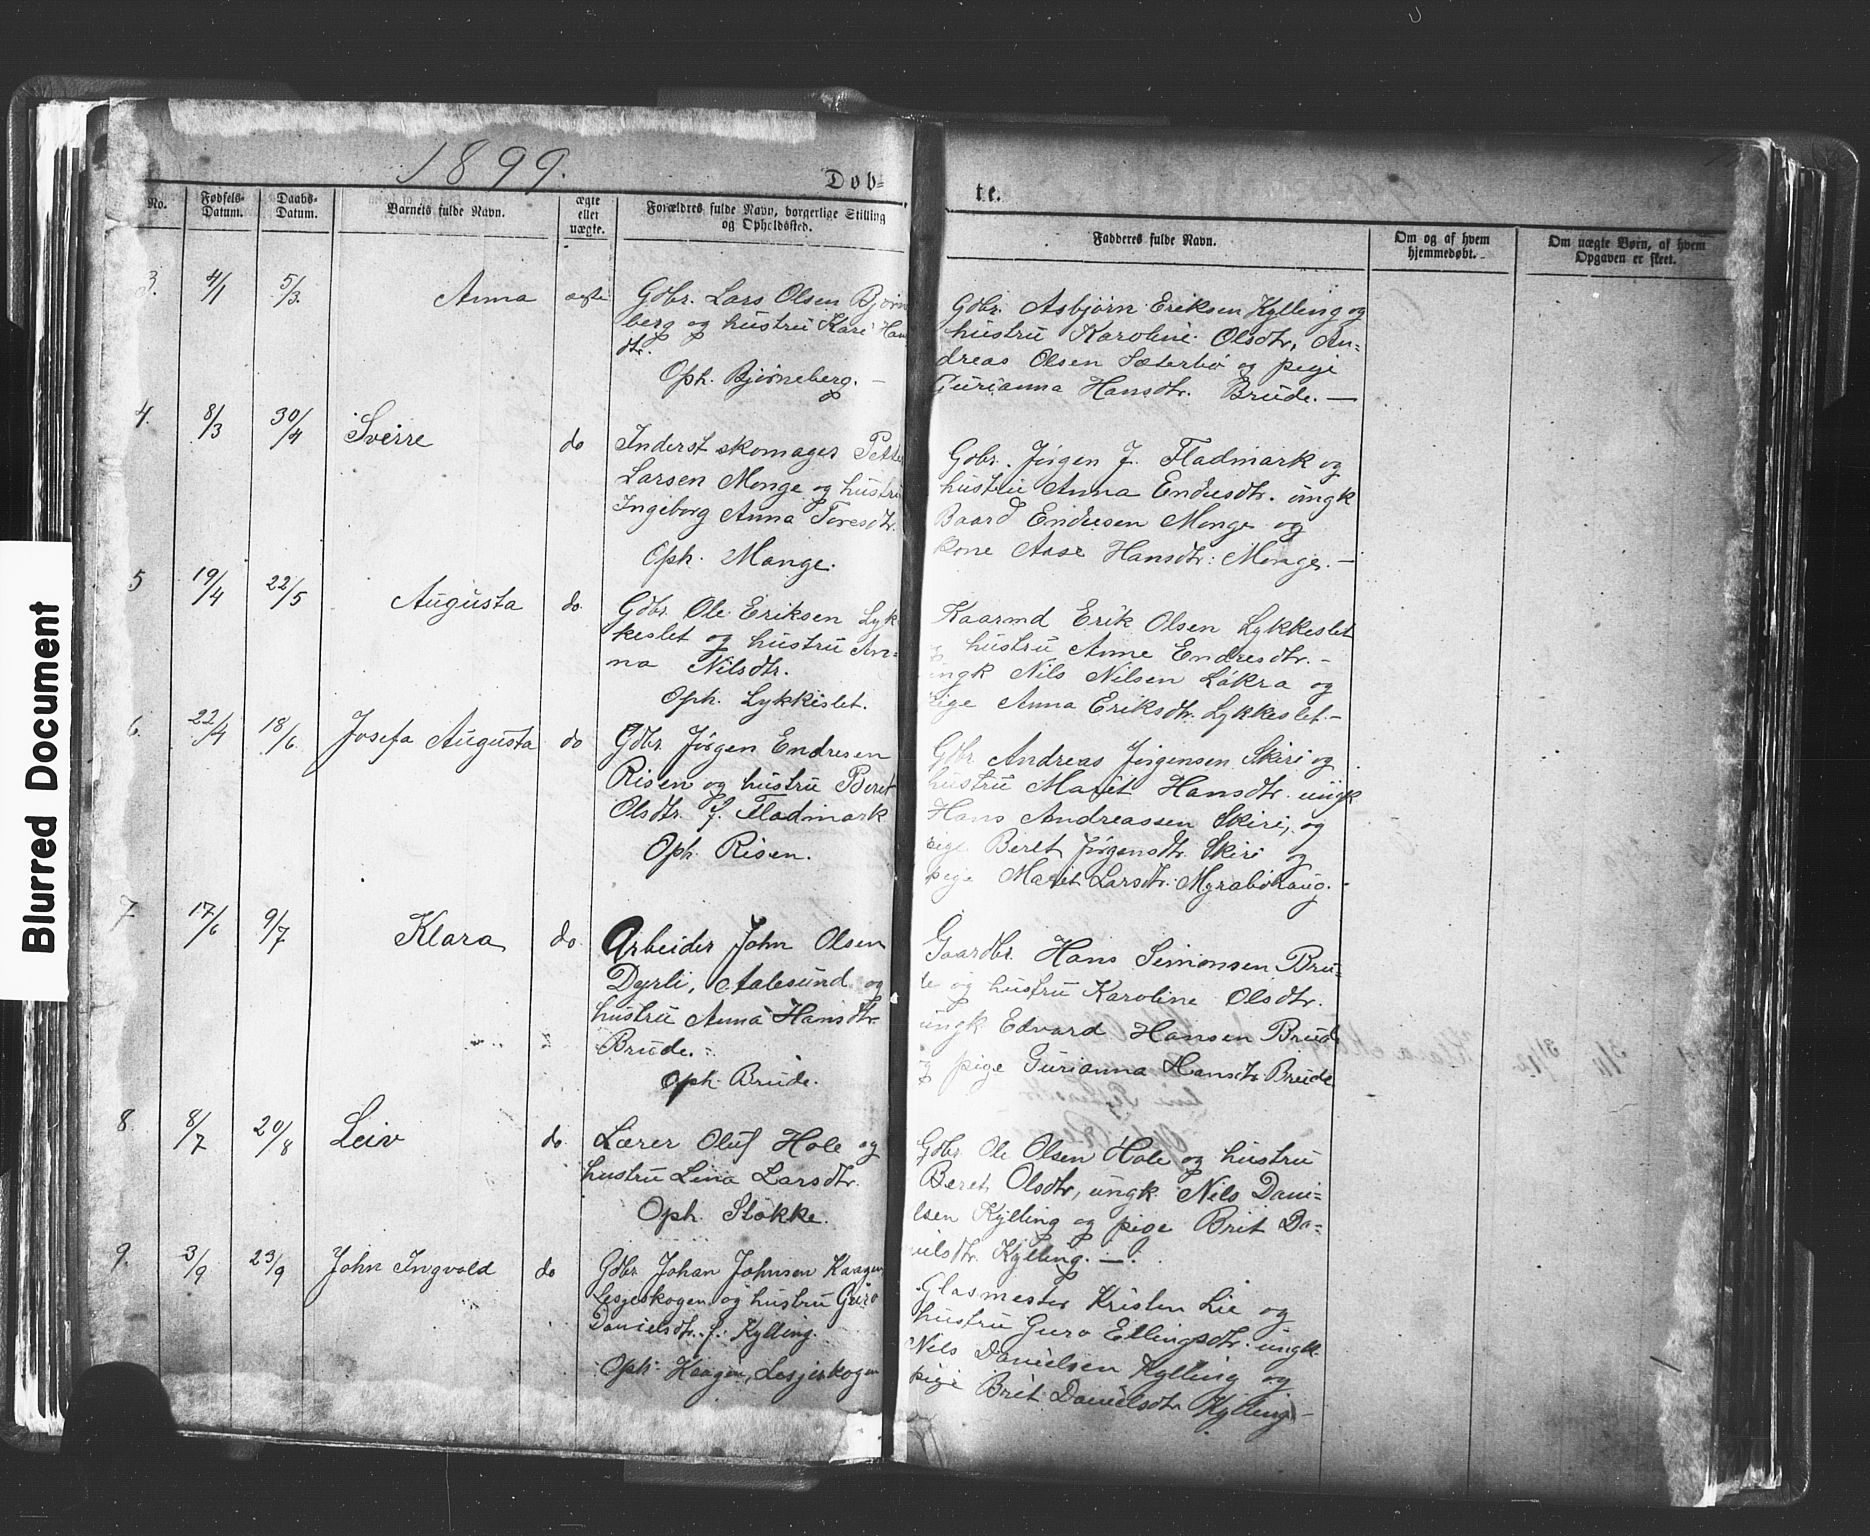 1899.
Døb=
te.
No.
Fødsels-
Datum.
Daabs-
Datum.
Barnets fulde Navn.
ægte
eller
uægte.
Forældres fulde Navn, borgerlige Stilling
og Opholdssted.
Fadderes fulde Navn.
Om og af hvem
hjemmedøbt.
Om uægte Børn, af hvem
Opgaven er skeet.
3. 4/1 5/3. Anna ægte
Gdbr. Lars Olsen Bjørne
berg og hustru Kari Han
dtr.
Oph. Bjørneberg. -
Gdbr. Asbjørn Eriksen Kylling og
hustru Karoline Olsdtr, An=
dreas Olsen Sæterbø og pige
Gurianna Hansdtr. Brude. —
4. 8/3 30/4 Sverre do
Inderst skomager Petter
Larsen Monge og hustru
Ingeborg Anna Toresdtr.
Oph. Monge.
Gdbr. Jørgen J. Fladmark og
hustru Anna Endresdtr. ungk
Baard Endresen Monge og
kone Aase Hansdtr. Monge. -
5 19/4 22/5 Augusta do.
Gdbr. Ole Eriksen Lyk
keslet og hustru An=
na Nilsdtr.
Oph. Lykkeslet.
Kaarmd Erik Olsen Lykkeslet
hustru Anne Endresdtr. -
ungk Nils Nilsen Løkra og
pige Anna Eriksdtr. Lykkeslet. -
6. 22/4 18/6. Josefa Augusta do
Gdbr. Jørgen Endresen
Risen og hustru Beret
Olsdtr. f. Fladmark
Oph. Risen.
Gdbr Andreas Jørgensen Skiri og
hustru Marit Hansdtr. ungk
Hans Andreassen Skiri, og
pige Beret Jørgensdtr. Skiri og
pige Marit Larsdtr. Myrabøhaug. -
7 17/6 9/7 Klara do.
Arbeider John Olsen
Dyrli, Aalesund og
hustru Anna Hansdtr.
Brude. -
Oph. Brude.
Gaardbr. Hans Simonsen Bru=
de og hustru Karoline Olsdtr.
ungk Edvard Hansen Brude
og pige Gurianna Hansdtr. Brude
8. 8/7 20/8 Leiv do
Lærer Oluf Hole og
hustru Lina Larsdtr.
Oph. Stokke.
Gdbr. Ole Olsen Hole og hustru
Beret Olsdtr, ungk. Nils Dani=
elsen Kylling og pige Brit Da=
nielsdtr. Kylling. —.
9. 3/9 23/9 John Ingvold do
Gdbr. Johan Johnsen Kaagen
Lesjeskogen og hustru Guro
Danielsdtr. f. Kylling.
Oph. Kaagen, Lesjeskogen
Glasmester Kristen Lie og
hustru Guro Ellingsdtr. ungk.
Nils Danielsen Kylling og
pige Brit Danielsdtr Kylling -
Blurred Document